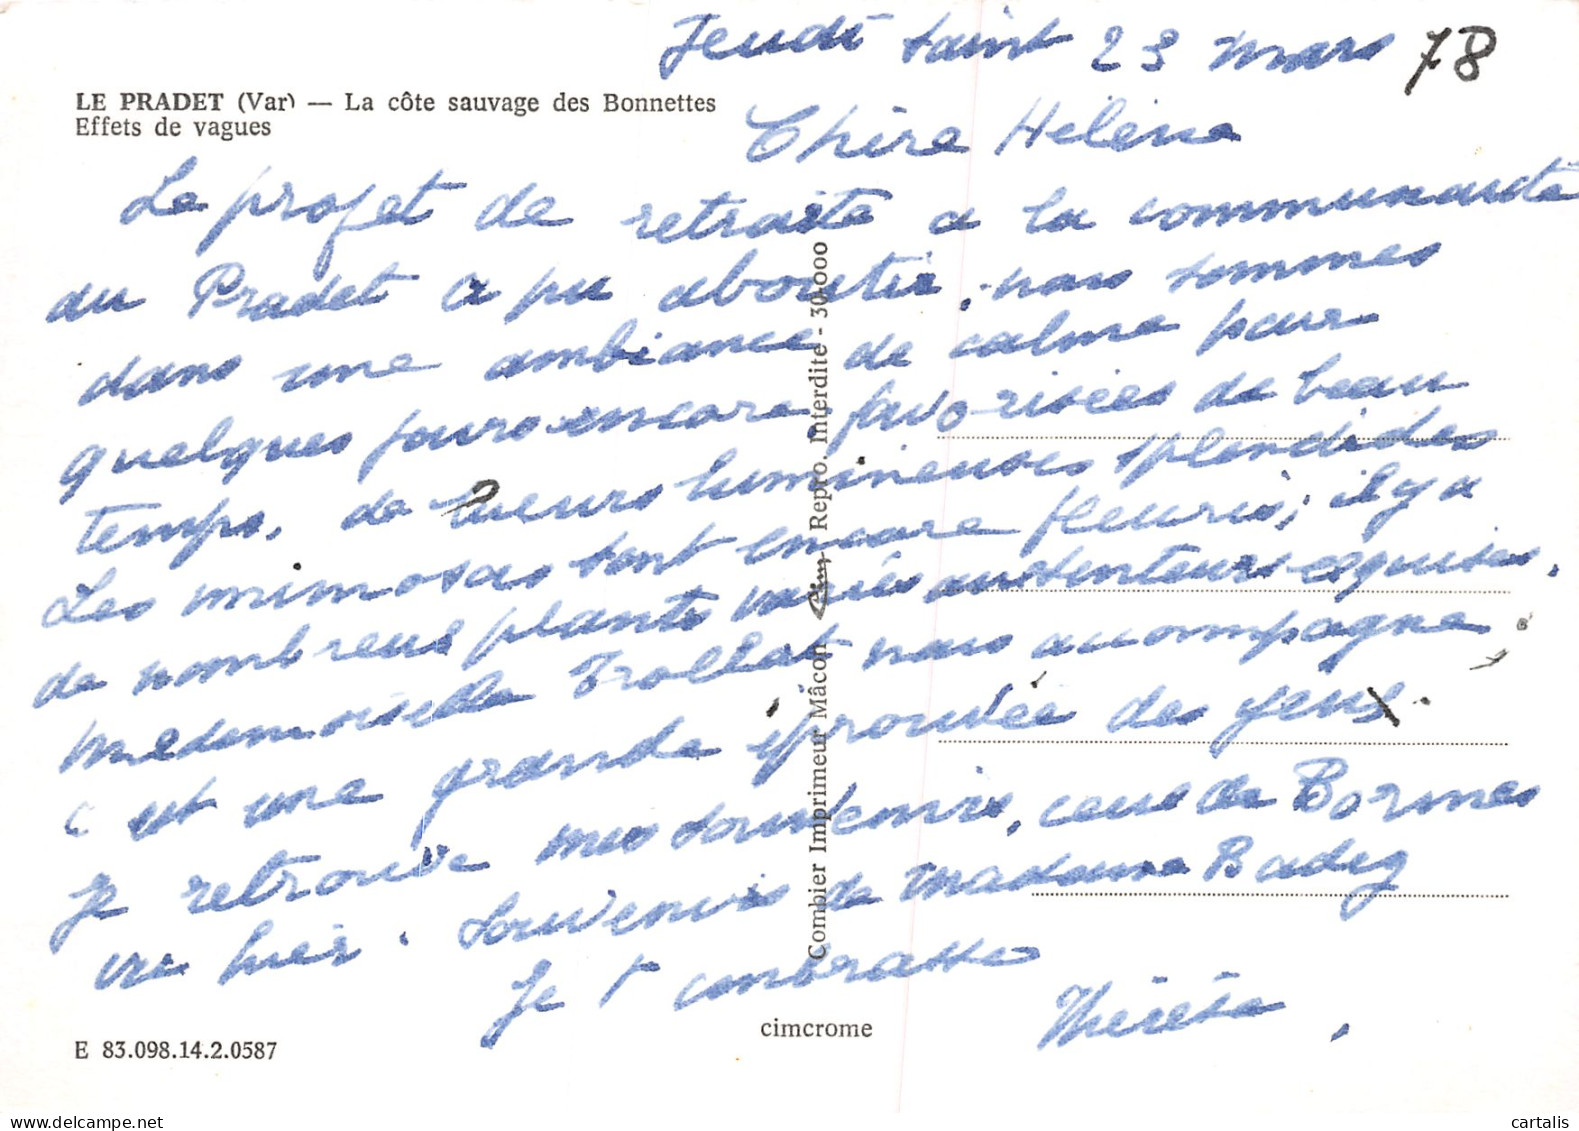 Jeudi saint 23 mars 78
LE PRADET (Var) — La côte sauvage des Bonnettes
Effets de vagues
Chère Hélène
Le projet de retraite a la communauté
du Pradet a pu aboutir, nous sommes
dans une ambiance de calme pour
quelques jours encore, favorisées de beau
temps, de lueurs lumineuses splendides
Les mimosas sont encore fleuris; il y a
de nombreux plants variés aux senteurs exquises.
Mademoiselle Trollat nous accompagne,
c est une grande éprouvée des yeux.
Je retrouve mes souvenirs, ceux de Bormes
vu hier. Souvenirs de Madame Badey
Je t embrasse
Thérèse.
Combier Imprimeur Mâcon Cim Repro. Interdite - 30.000
cimcrome
E 83.098.14.2.0587
www.delcampe.net
cartalis